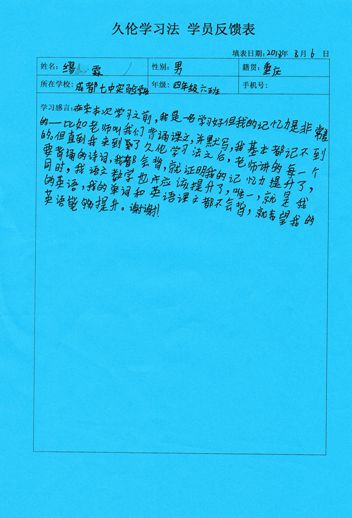 久伦学习法 学员反馈表
填表日期:2013年3月6日
姓名: 霖 性别: 男 籍贯: 重庆
所在学校: 成都七中实验学校 年级: 四年级六班 手机号:
学习感言: 在来本次学习之前,我是一名学习好但我的记忆力是非常差
的——比如老师叫我们背诵课文,来默写,我基本都记不到
的,但直到我来到了久伦学习法之后,老师讲的每一个
要背诵的诗词,我都会背,就证明我的记忆力提升了,
同时,我语文数学也应该提升了,唯一,就是我
的英语,我的单词和英语课文都不会背,就希望我的
英语能够提升。谢谢!